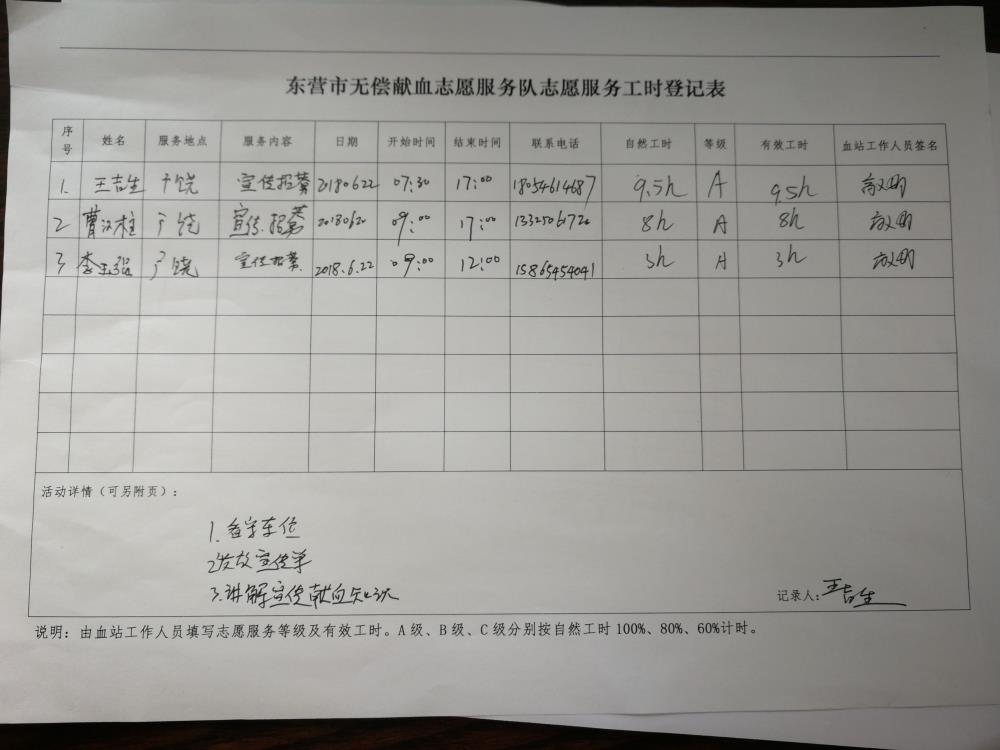 东营市无偿献血志愿服务队志愿服务工时登记表
序号 姓名 服务地点 服务内容 日期 开始时间 结束时间 联系电话 自然工时 等级 有效工时 血站工作人员签名
1. 王吉生 广饶 宣传招募 20180622 07:30 17:00 18054614687 9.5h A 9.5h
2 曹汉柱 广饶 宣传.招募 09:00 17:00 8h A 8h
3 李玉强 广饶 宣传招募. 2018.6.22 09:00 12:00 15865454041 3h A 3h
活动详情（可另附页）：
1.看守车位
2发放宣传单
3.讲解宣传献血知识
记录人:王吉生
说明：由血站工作人员填写志愿服务等级及有效工时。A级、B级、C级分别按自然工时100%、80%、60%计时。